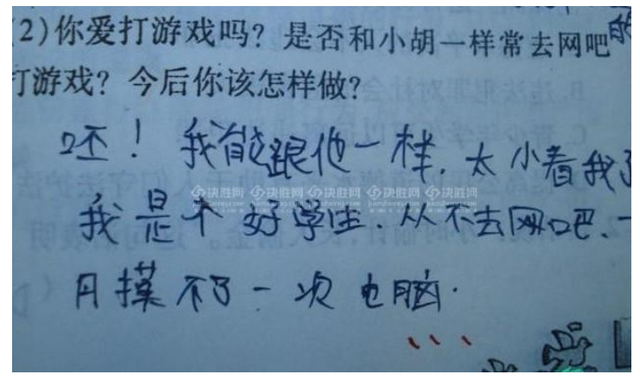 (2)你爱打游戏吗？是否和小胡一样常去网吧
打游戏？今后你该怎样做？
呸！我能跟他一样，太小看我了
我是个好学生，从不去网吧、一
月摸不了一次电脑.
决胜网 决胜网 决胜网